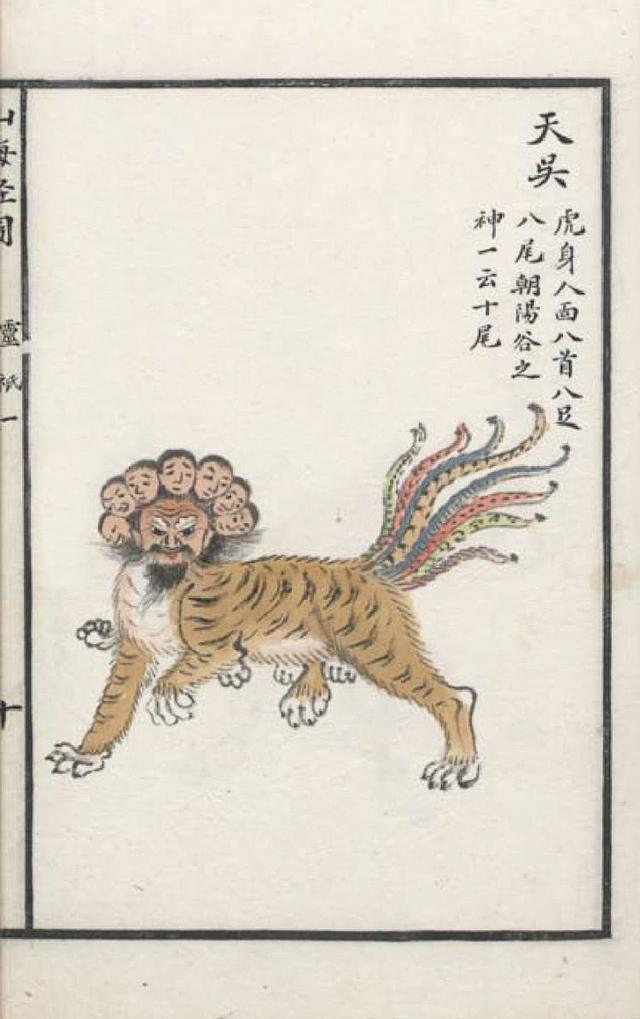 天吳
虎身八面八首八足
八尾朝陽谷之
神一云十尾
山海经圖
靈祇一
十